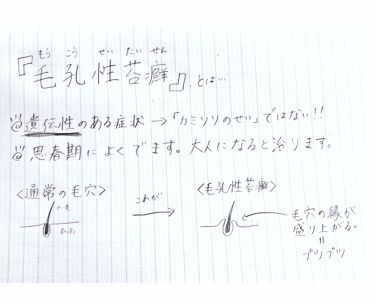 もう こう せい たい せん
『毛孔性苔癬』とは…
遺伝性のある症状→「カミソリのせい」ではない!!
思春期によくでます。大人になると治ります。
<通常の毛穴> これが <毛孔性苔癬>
毛穴の縁が
盛り上がる。
॥
プツプツ